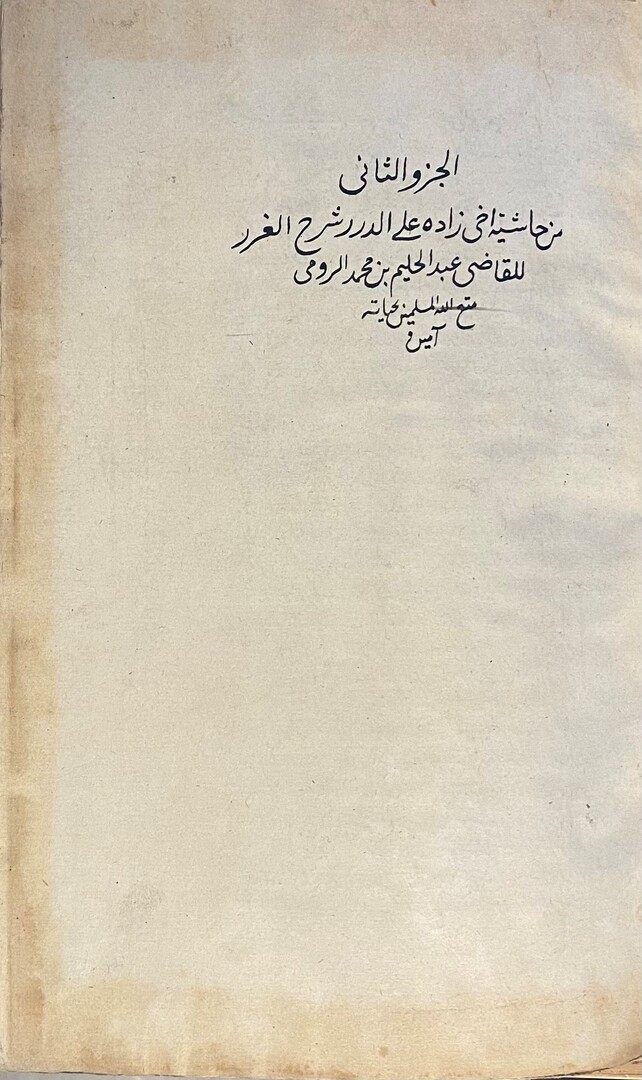 الجزو الثانى
من حاشية اخى زاده على الدرر شرح الغرر
للقاضى عبد الحليم بن محمد الرومى
متع الله المسلمين بحياته
آمين